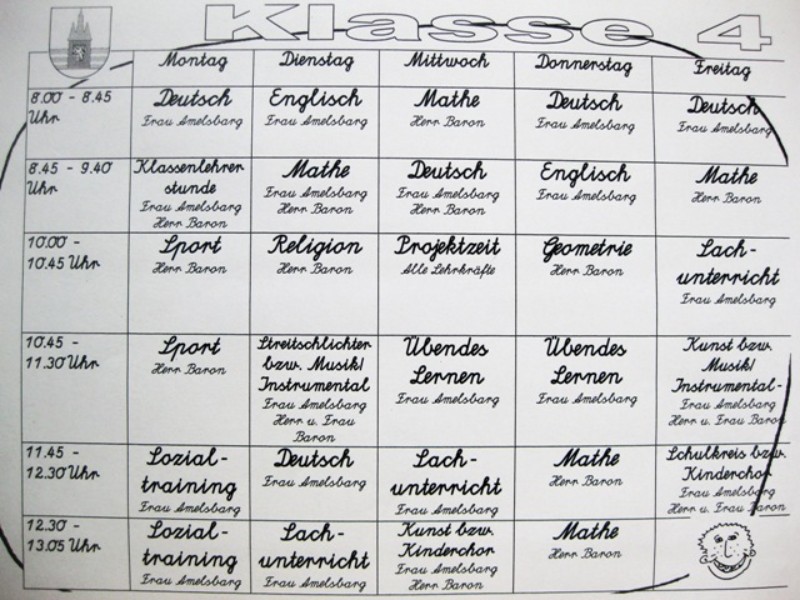 Klasse 4
Montag Dienstag Mittwoch Donnerstag Freitag
8.00 - 8.45 Uhr
Deutsch
Frau Amelsbarg
Englisch
Frau Amelsbarg
Mathe
Herr Baron
Deutsch
Frau Amelsbarg
Deutsch
Frau Amelsbarg
8.45 - 9.40 Uhr
Klassenlehrer
stunde
Frau Amelsbarg
Herr Baron
Mathe
Frau Amelsbarg
Herr Baron
Deutsch
Frau Amelsbarg
Herr Baron
Englisch
Frau Amelsbarg
Mathe
Herr Baron
10.00 -
10.45 Uhr
Sport
Herr Baron
Religion
Herr Baron
Projektzeit
Alle Lehrkräfte
Geometrie
Herr Baron
Sach-
unterricht
Frau Amelsbarg
10.45 -
11.30 Uhr
Sport
Herr Baron
Streitschlichter
bzw. Musik/
Instrumental
Frau Amelsbarg
Herr u. Frau
Baron
Übendes
Lernen
Frau Amelsbarg
Übendes
Lernen
Frau Amelsbarg
Kunst bzw.
Musik/
Instrumental-
Frau Amelsbarg
Herr u. Frau Baron
11.45 -
12.30 Uhr
Sozial-
training
Frau Amelsbarg
Deutsch
Frau Amelsbarg
Sach-
unterricht
Frau Amelsbarg
Mathe
Herr Baron
Schulkreis bzw.
Kinderchor
Frau Amelsbarg
Herr u. Frau Baron
12.30 -
13.05 Uhr
Sozial-
training
Frau Amelsbarg
Sach-
unterricht
Frau Amelsbarg
Kunst bzw.
Kinderchor
Frau Amelsbarg
Herr Baron
Mathe
Herr Baron